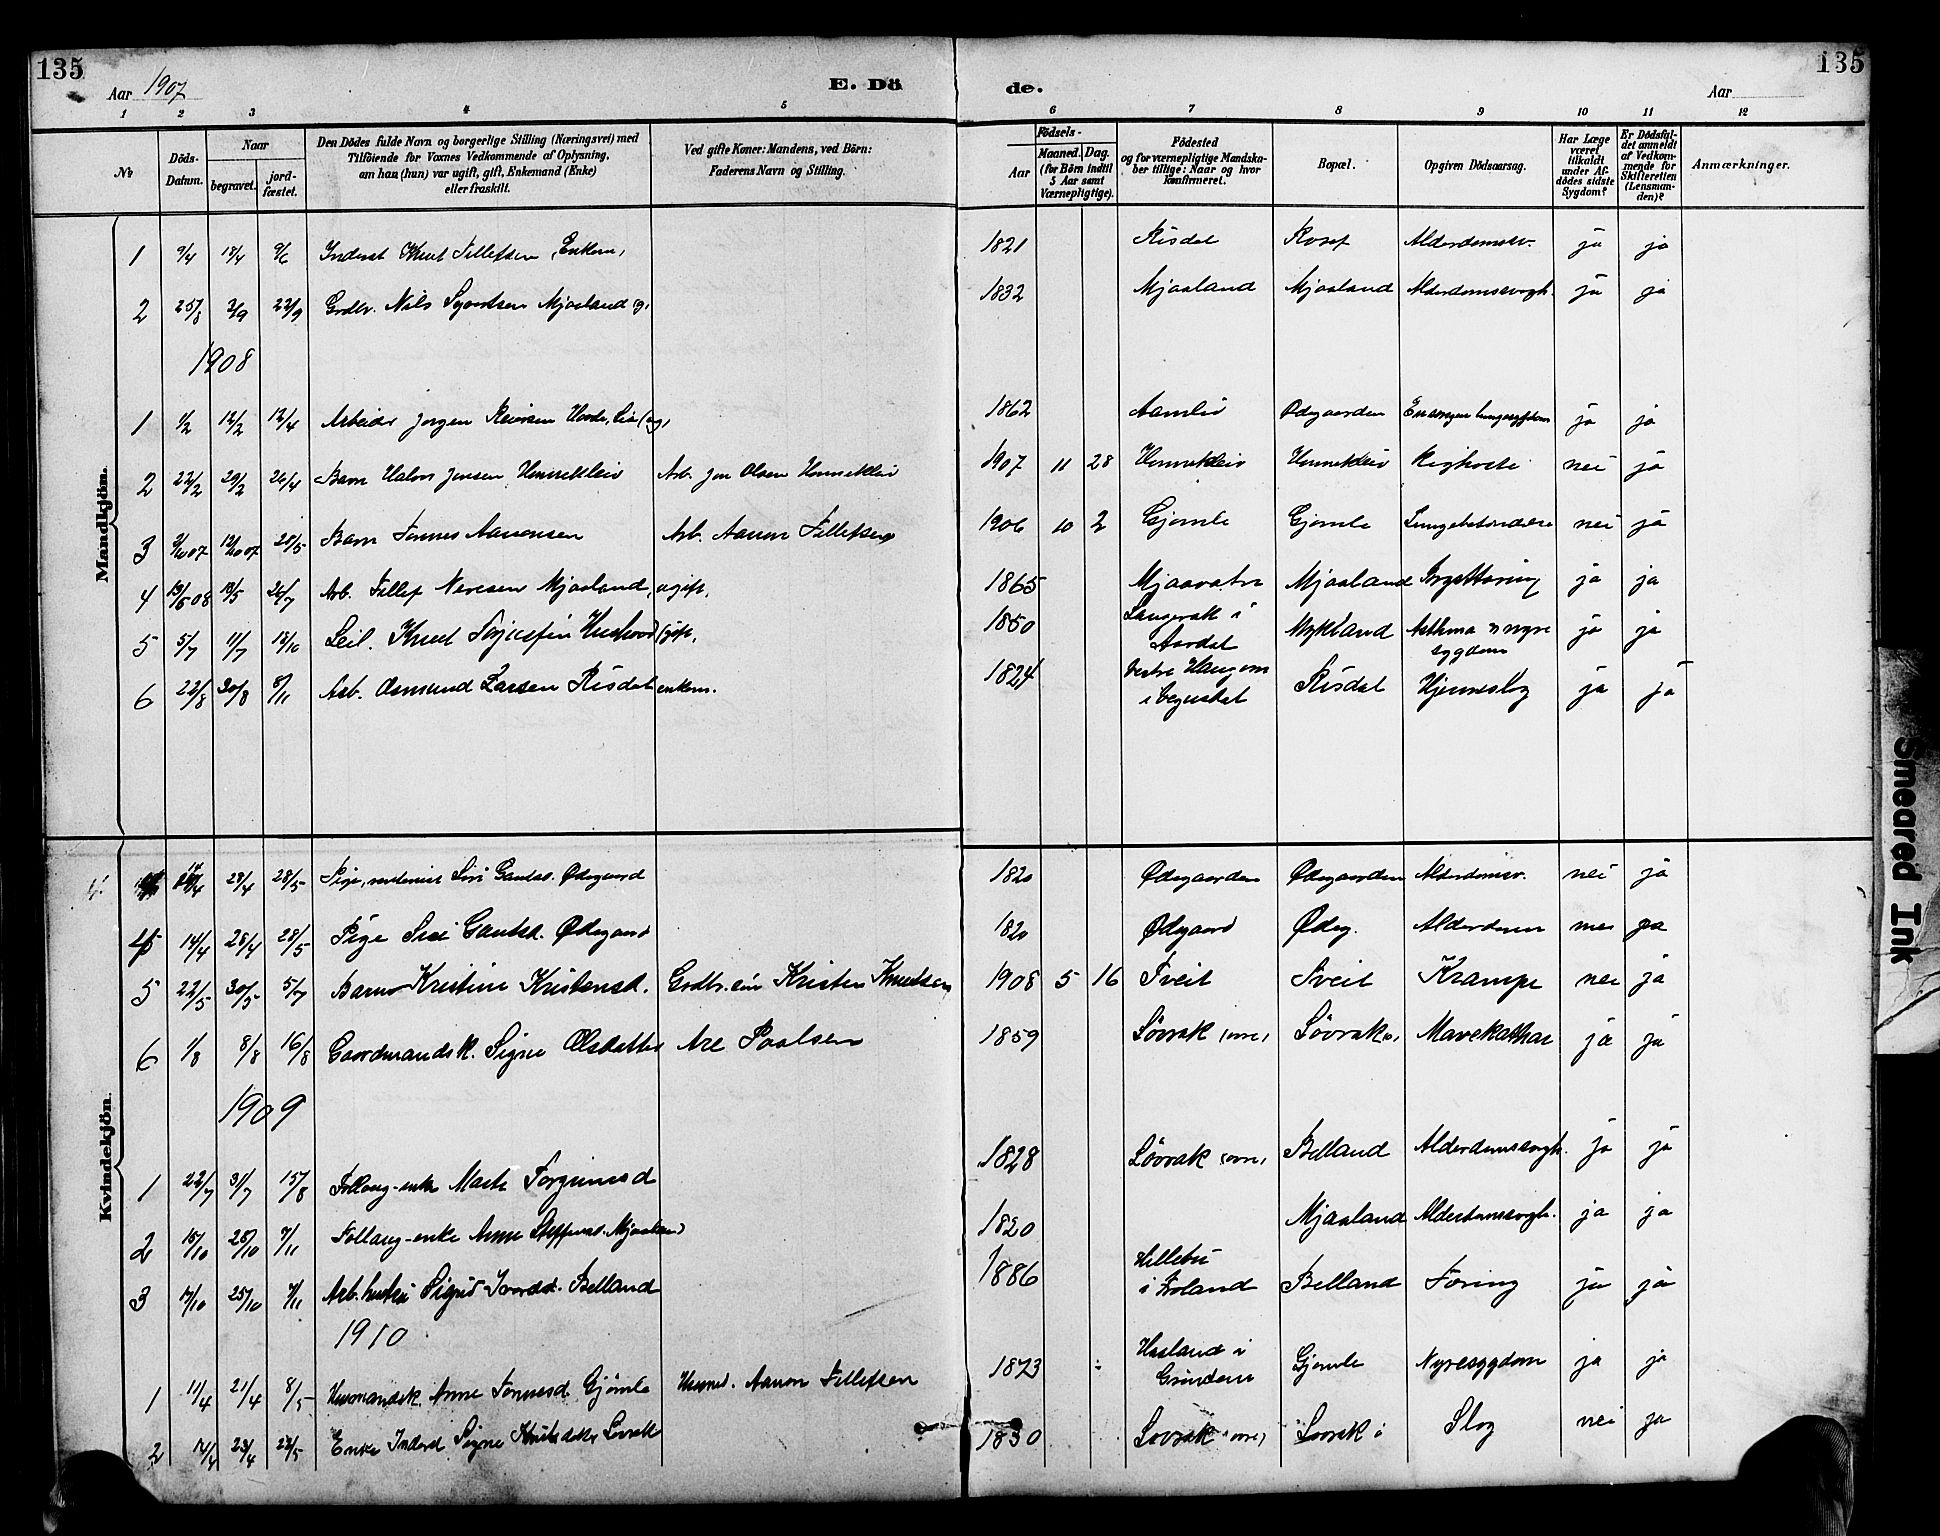 135
Aar 1907
E. Dö
de.
Aar
135
1 2 3 4 5 6 7 8 9 10 11 12
№
Döds-
Datum.
Naar
begravet.
jord-
fæstet.
Den Dödes fulde Navn og borgerlige Stilling (Næringsvei) med
Tilföiende for Voxnes Vedkommende af Oplysning,
om han (hun) var ugift, gift, Enkemand (Enke)
eller fraskilt.
Ved gifte Koner: Mandens, ved Börn:
Faderens Navn og Stilling.
Födsels-
Aar
Maaned. Dag.
(for Börn indtil
5 Aar samt
Værnepligtige).
Födested
og for værnepligtige Mandska-
ber tillige: Naar og hvor
konfirmeret.
Bopæl.
Opgiven Dödsaarsag.
Har Læge
været
tilkaldt
under Af-
dödes sidste
Sygdom?
Er Dödsfal-
det anmeldt
af Vedkom-
mende for
Skifteretten
(Lensman-
den)?
Anmærkninger.
Mandkjön.
1 9/4 18/4 9/6 Inderst Knut Tellefsen (Enkem) 1821 Risdal Alderdomssv. ja ja
2 25/8 2/9 22/9 Grdbr. Nils Sjurdsen Mjaaland (g) 1832 Mjaaland Mjaaland Alderdomssvagh. ja ja
1908
1 1/2 12/2 12/4 Arbeider Jørgen (ug) 1862 Aamli Ødegaarden ja ja
2 22/2 29/2 26/4 Barn Halvor Jensen Arb. Jon Olsen 1907 11 28 Kighoste nei ja
3 9/10 07 12/10 07 28/5 Barn Tønnes Aanonsen Arb. Aanon Tellefsen 1906 10 2 Gjømle Gjømle Lungebetændelse nei ja
4 13/5 08 19/5 26/7 Arb. Tellef Mjaaland, ugift. 1865 Mjaavatn Mjaaland Brysttæring ja ja
5 5/7 11/7 18/10 Leil. Knut (gift) 1850 Langerak i
Aardal Mykland Asthma og nyre
sygdom ja ja
6 22/8 30/8 8/11 Arb. Osmund Larsen Risdal enkem. 1824 Vestre
i Vegusdal Risdal Hjerneslag ja ja
Kvindekjön.
4. 14/4 28/4 28/5 Pige, Siri Gautsd. Ødegaard 1820 Ødegaarden Ødegaarden Alderdomssv. nei ja
4 14/4 28/4 28/5 Pige Siri Gautsd. Ødegaard 1820 Ødegaard Ødeg. Alderdom nei ja
5 22/5 30/5 5/7 Barn Kristine Kristensd. Grdbr. søn Kristen Knudsen 1908 5 16 Tveit Tveit Krampe nei ja
6 1/8 8/8 16/8 Gaardmandsk. Signe Olsdatter Are Paalsen 1859 Løvrak (øvre) Løvrak ø, Mavekathar ja ja
1909
1 22/7 31/7 15/8 Follaug-enke Marte Torgrimsd 1828 Løvrak (øvre) Belland Alderdomssvagh. ja ja
2 15/10 25/10 7/11 Follaug-enke Anne Steffensd. Mjaaland 1820 Mjaaland Alderdomssvagh. ja ja
3 17/10 25/10 7/11 Arb. hustru Sigrid Ivarsd. Belland 1886 Hillebu
i Froland Belland Tæring ja ja
1910
1 11/4 21/4 8/5 Husmandsk. Anne Tønnesd. Gjømle Husmd. Aanon Tellefsen 1873 Gjømle Nyresygdom ja ja
2 17/4 23/4 22/5 Enke Inderst Signe Knutsdatter Løvrak 1830 Løvrak (øvre) Løvrak ø Slag nei ja
Smeared Ink